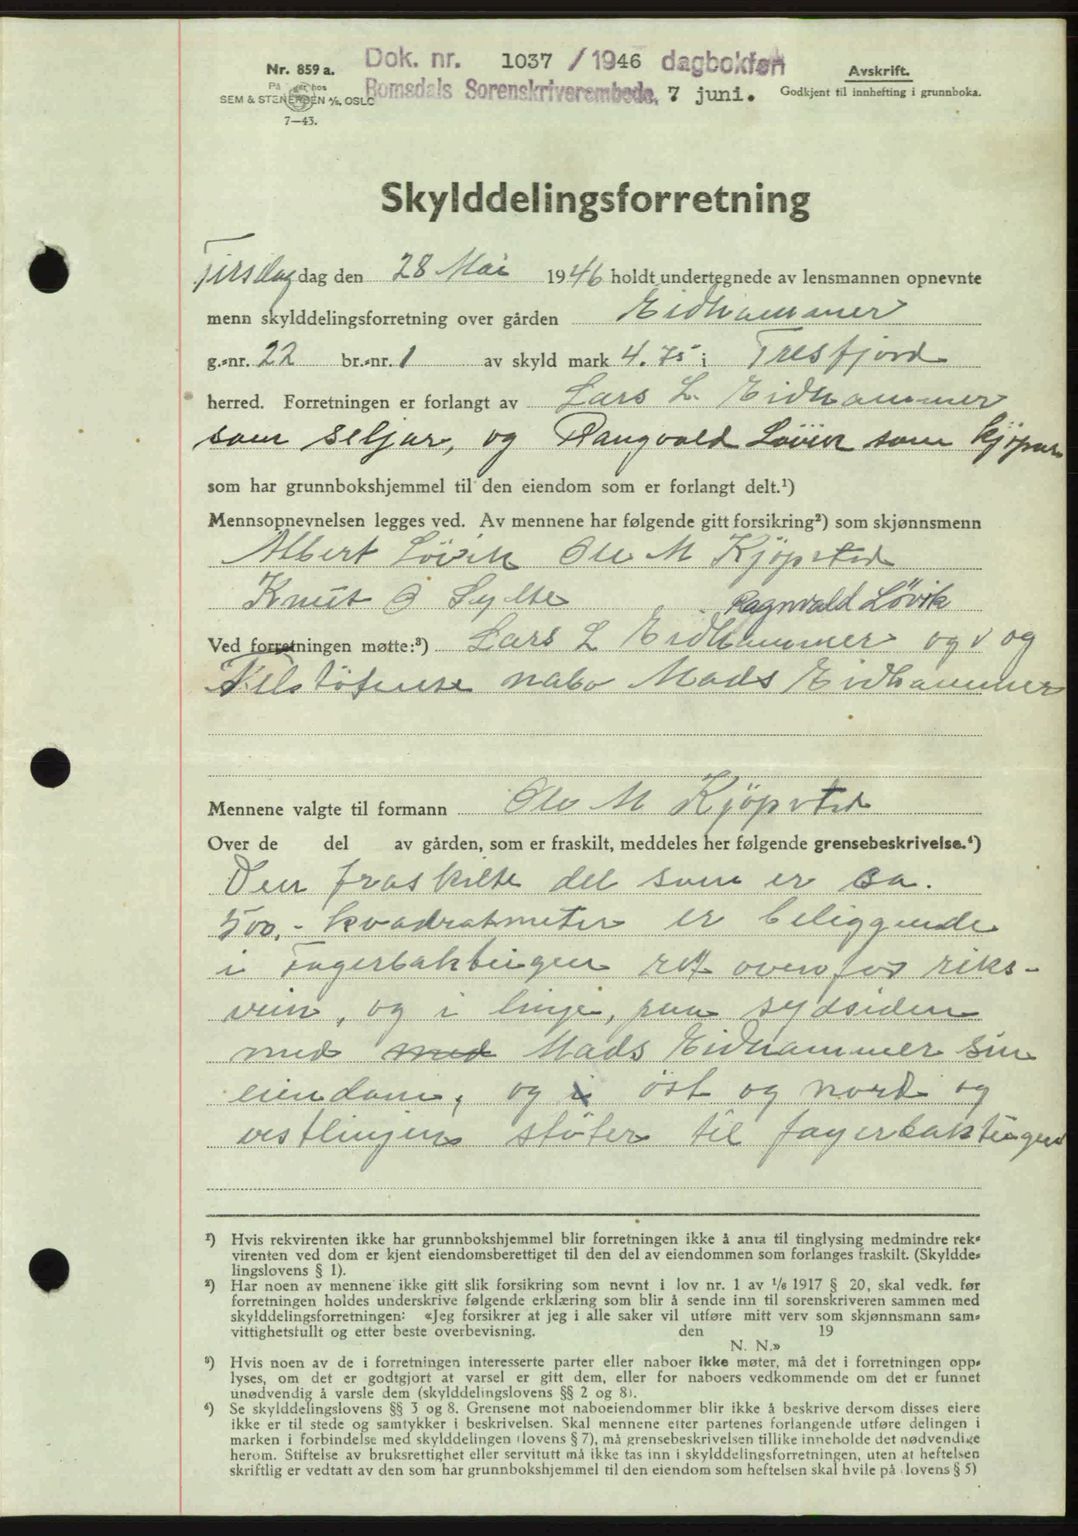 Nr. 859 a.
På lager hos
SEM & STENERSEN A/S, OSLO
7—43.
Dok. nr. 1037 / 1946 dagbokført
Romsdals Sorenskriverembede, 7 juni.
Avskrift.
Godkjent til innhefting i grunnboka.
Skylddelingsforretning
Tirsdag dag den 28 Mai 1946 holdt undertegnede av lensmannen opnevnte
menn skylddelingsforretning over gården Eidhammer
g.-nr. 22 br.-nr. 1 av skyld mark 4.75 i Tresfjord
herred. Forretningen er forlangt av Lars L. Eidhammer
som seljar, og Rangvald Løvik som kjøpar
som har grunnbokshjemmel til den eiendom som er forlangt delt.¹)
Mennsopnevnelsen legges ved. Av mennene har følgende gitt forsikring²) som skjønnsmenn
Albert Løvik Ole M Kjöpstad
Knut O Sylte
Ragnvald Løvik
Ved forretningen møtte:³) Lars L Eidhammer og v og
Tilstötense nabo Mads Eidhammer
Mennene valgte til formann Ole M Kjöpstad
Over de del av gården, som er fraskilt, meddeles her følgende grensebeskrivelse.⁴)
Den fraskilte del som er ca.
500,- kvadratmeter er beliggende
i Fagerbakteigen rett ovenfor riks-
vein, og i linje, paa sydsiden
med med Mads Eidhammer sin
eiendom, og i öst og nord og
vestlinjen støter til fagerbakteigen
¹) Hvis rekvirenten ikke har grunnbokshjemmel blir forretningen ikke å anta til tinglysing medmindre rek-
virenten ved dom er kjent eiendomsberettiget til den del av eiendommen som forlanges fraskilt. (Skyldde-
lingslovens § 1).
²) Har noen av mennene ikke gitt slik forsikring som nevnt i lov nr. 1 av 1/6 1917 § 20, skal vedk. før
forretningen holdes underskrive følgende erklæring som blir å sende inn til sorenskriveren sammen med
skylddelingsforretningen: «Jeg forsikrer at jeg i alle saker vil utføre mitt verv som skjønnsmann sam-
vittighetsfullt og etter beste overbevisning. den 19
N. N.»
³) Hvis noen av de i forretningen interesserte parter eller naboer ikke møter, må det i forretningen opp-
lyses, om det er godtgjort at varsel er gitt dem, eller for naboers vedkommende om det er funnet
unødvendig å varsle dem (skylddelingslovens §§ 2 og 8).
⁴) Se skylddelingslovens §§ 3 og 8. Grensene mot naboeiendommer blir ikke å beskrive dersom disses eiere
ikke er til stede og samtykker i beskrivelsen. Skal mennene etter partenes forlangende utføre delingen i
marken i forbindelse med skylddelingen (lovens § 7), må grensebeskrivelsen tillike inneholde det nødvendige
herom. Stiftelse av bruksrettighet eller servitutt må ikke tas inn i skylddelingsforretningen, uten at heftelsen
skriftlig er vedtatt av den som har grunnbokshjemmel til den eiendom som heftelsen skal hvile på (lovens § 5)